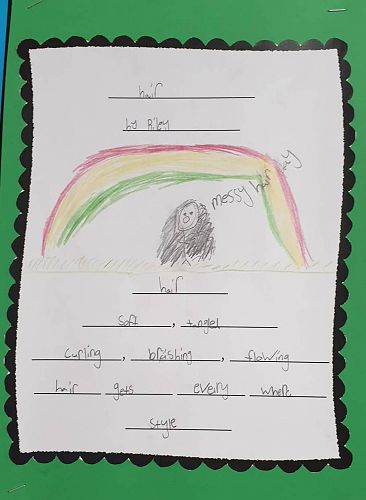 hair
by Riley
messy hair day
hair
soft, tangled
curling, brāishing, flowing
hair gets eveiry where
style